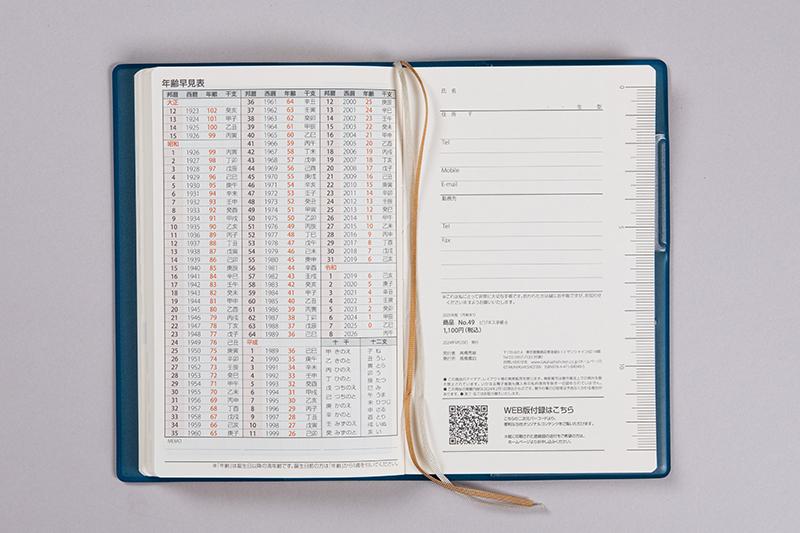 年齢早見表
邦暦 西暦 年齢 干支
大正
12 1923 102 癸亥
13 1924 101 甲子
14 1925 100 乙丑
15 1926 99 丙寅
昭和
1 1926 99 丙寅
2 1927 98 丁卯
3 1928 97 戊辰
4 1929 96 己巳
5 1930 95 庚午
6 1931 94 辛未
7 1932 93 壬申
8 1933 92 癸酉
9 1934 91 甲戌
10 1935 90 乙亥
11 1936 89 丙子
12 1937 88 丁丑
13 1938 87 戊寅
14 1939 86 己卯
15 1940 85 庚辰
16 1941 84 辛巳
17 1942 83 壬午
18 1943 82 癸未
19 1944 81 甲申
20 1945 80 乙酉
21 1946 79 丙戌
22 1947 78 丁亥
23 1948 77 戊子
24 1949 76 己丑
25 1950 75 庚寅
26 1951 74 辛卯
27 1952 73 壬辰
28 1953 72 癸巳
29 1954 71 甲午
30 1955 70 乙未
31 1956 69 丙申
32 1957 68 丁酉
33 1958 67 戊戌
34 1959 66 己亥
35 1960 65 庚子
邦暦 西暦 年齢 干支
36 1961 64 辛丑
37 1962 63 壬寅
38 1963 62 癸卯
39 1964 61 甲辰
40 1965 60 乙巳
41 1966 59 丙午
42 1967 58 丁未
43 1968 57 戊申
44 1969 56 己酉
45 1970 55 庚戌
46 1971 54 辛亥
47 1972 53 壬子
48 1973 52 癸丑
49 1974 51 甲寅
50 1975 50 乙卯
51 1976 49 丙辰
52 1977 48 丁巳
53 1978 47 戊午
54 1979 46 己未
55 1980 45 庚申
56 1981 44 辛酉
57 1982 43 壬戌
58 1983 42 癸亥
59 1984 41 甲子
60 1985 40 乙丑
61 1986 39 丙寅
62 1987 38 丁卯
63 1988 37 戊辰
64 1989 36 己巳
平成
1 1989 36 己巳
2 1990 35 庚午
3 1991 34 辛未
4 1992 33 壬申
5 1993 32 癸酉
6 1994 31 甲戌
7 1995 30 乙亥
8 1996 29 丙子
9 1997 28 丁丑
10 1998 27 戊寅
11 1999 26 己卯
邦暦 西暦 年齢 干支
12 2000 25 庚辰
13 2001 24 辛巳
14 2002 23 壬午
15 2003 22 癸未
16 2004 21 甲申
17 2005 20 乙酉
18 2006 19 丙戌
19 2007 18 丁亥
20 2008 17 戊子
21 2009 16 己丑
22 2010 15 庚寅
23 2011 14 辛卯
24 2012 13 壬辰
25 2013 12 癸巳
26 2014 11 甲午
27 2015 10 乙未
28 2016 9 丙申
29 2017 8 丁酉
30 2018 7 戊戌
31 2019 6 己亥
令和
1 2019 6 己亥
2 2020 5 庚子
3 2021 4 辛丑
4 2022 3 壬寅
5 2023 2 癸卯
6 2024 1 甲辰
7 2025 0 乙巳
8 2026 丙午
十干 十二支
甲 きのえ 子 ね
乙 きのと 丑 うし
丙 ひのえ 寅 とら
丁 ひのと 卯 う
戊 つちのえ 辰 たつ
己 つちのと 巳 み
庚 かのえ 午 うま
辛 かのと 未 ひつじ
壬 みずのえ 申 さる
癸 みずのと 酉 とり
戌 いぬ
亥 い
MEMO
※「年齢」は誕生日以降の満年齢です。誕生日前の方は「年齢」から1歳を引いてください。
氏 名
生 型
住 所 〒
Tel
Mobile
E-mail
勤務先
Tel
Fax
0
5
10
※これは私にとって非常に大切な手帳です。拾われた方は誠にお手数ですが、お知らせ
くださいますようお願いいたします。
商品 No.49 ビジネス手帳
1,100円(税込)
WEB版付録はこちら
こちらの二次元バーコードより、
便利な当社オリジナルコンテンツをご覧いただけます。
ホームページよりお申し込みください。